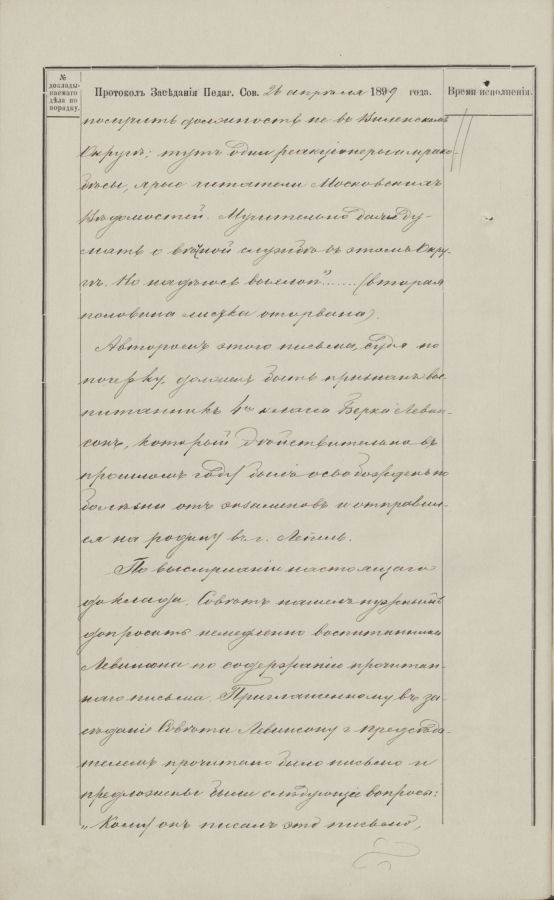 № доклады-
ваемаго
дѣла по
порядку.
Протоколъ Засѣданія Педаг. Сов. 26 апрѣля 1899 года.
Время исполненія.
получить должность не въ Виленскомъ
Округѣ; тутъ одни реакціонеры и мрако-
бѣсы, ярые читатели Московскихъ
Вѣдомостей. Мучительно даже ду-
мать о вѣчной службѣ въ этомъ Окру-
гѣ. Но надѣюсь
"...... (вторая
половина листка оторвана).
Авторомъ этого письма, судя по
почерку, долженъ быть признанъ вос-
питанникъ 4го класса Берка Левин-
сонъ, который дѣйствительно въ
прошломъ году былъ освобожденъ по
болѣзни отъ экзаменовъ и отправил-
ся на родину въ г. Лепель.
По выслушаніи настоящаго
доклада, Совѣтъ нашелъ нужнымъ
допросить немедленно воспитанника
Левинсона по содержанію прочитан-
наго письма. Приглашенному въ за-
сѣданіе Совѣта Левинсону г. предсѣда-
телемъ прочитано было письмо и
предложены были слѣдующіе вопросы:
"Кому онъ писалъ это письмо,